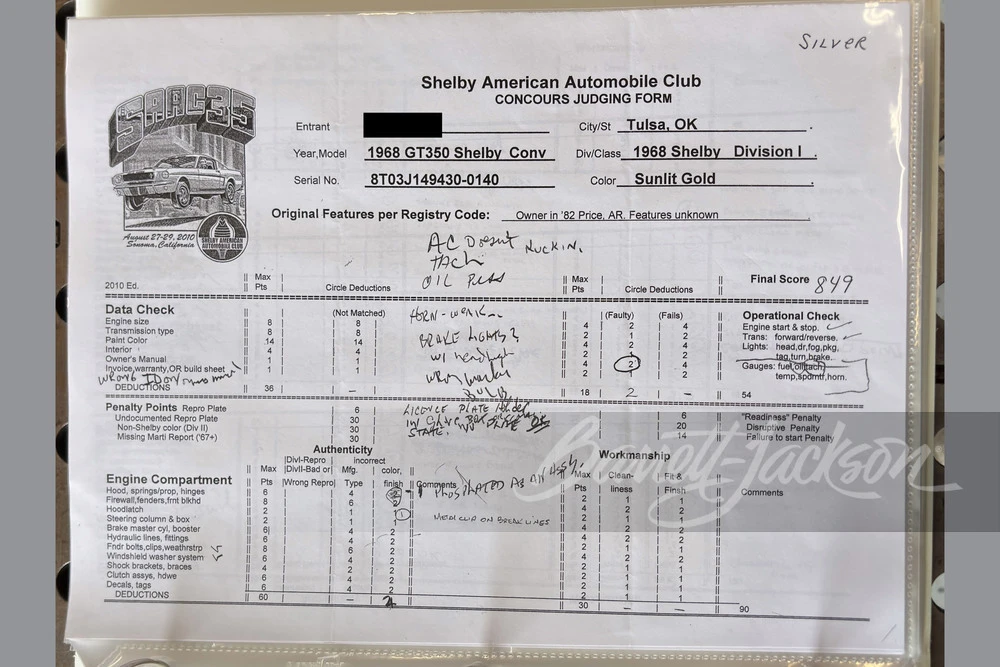 SILVER
Shelby American Automobile Club
CONCOURS JUDGING FORM
SAAC35
August 27-29, 2010
Sonoma, California
SHELBY AMERICAN AUTOMOBILE CLUB
Entrant City/St Tulsa, OK .
Year,Model 1968 GT350 Shelby Conv Div/Class 1968 Shelby Division I .
Serial No. 8T03J149430-0140 Color Sunlit Gold .
Original Features per Registry Code: Owner in '82 Price, AR. Features unknown .
AC Doesn't
TACH
OIL PRESS
2010 Ed. || Max Pts | Circle Deductions || Max Pts | Circle Deductions || Final Score 849
Data Check || | (Not Matched) | HORN - WEAK || | (Faulty) | (Fails) || Operational Check
Engine size || 8 | 8 | || 4 | 2 | 4 || Engine start & stop.
Transmission type || 8 | 8 | BRAKE LIGHTS? || 2 | 1 | 2 || Trans: forward/reverse.
Paint Color || 14 | 14 | || 4 | 2 | 4 || Lights: head,dr,fog,pkg,
Interior || 4 | 4 | || 2 | 2 | 2 || tag,turn,brake.
Owner's Manual || 1 | 1 | || 4 | 2 | 4 || Gauges: fuel,oil,tach,
Invoice,warranty,OR build sheet || 1 | 1 | || 2 | 2 || temp,spdmtr,horn.
WRONG ID on owners manual
DEDUCTIONS || 36 | – | || 18 | 2 | – || 54
Penalty Points Repro Plate 6 | LICENCE PLATE || 6 || "Readiness" Penalty
Undocumented Repro Plate 30 | || 20 || Disruptive Penalty
Non-Shelby color (Div II) 30 | STATE. || 14 || Failure to start Penalty
Missing Marti Report ('67+) 30
Authenticity Workmanship
|DivI-Repro | incorrect
|DivII-Bad or| Mfg. | color,
Engine Compartment || Max Pts |Wrong Repro| Type | finish || Comments || Max Pts | Clean-liness | Fit & Finsh || Comments
Hood, springs/prop, hinges || 6 | | 4 | 2 | PHOSPHATED AS AN ASSY. || 2 | 1 | 1 ||
Firewall,fenders,frnt blkhd || 8 | | 6 | 2 || 4 | 2 | 2 ||
Hoodlatch || 2 | | 1 | 1 || 2 | 1 | 1 ||
Steering column & box || 2 | | 1 | 1 | ON BREAK LINES || 4 | 2 | 2 ||
Brake master cyl, booster || 6 | | 4 | 2 || 4 | 2 | 2 ||
Hydraulic lines, fittings || 6 | | 4 | 2 || 2 | 1 | 1 ||
Fndr bolts,clips,weathrstrp || 8 | | 6 | 2 || 2 | 1 | 1 ||
Windshield washer system || 6 | | 4 | 2 || 4 | 2 | 2 ||
Shock brackets, braces || 4 | | 2 | 2 || 2 | 1 | 1 ||
Clutch assys, hdwe || 6 | | 4 | 2 || 2 | 1 | 1 ||
Decals, tags || 6 | | 4 | 2 || 2 | 1 | 1 ||
DEDUCTIONS || 60 | | – | 2 || 30 | – | – || 90
Barrett-Jackson